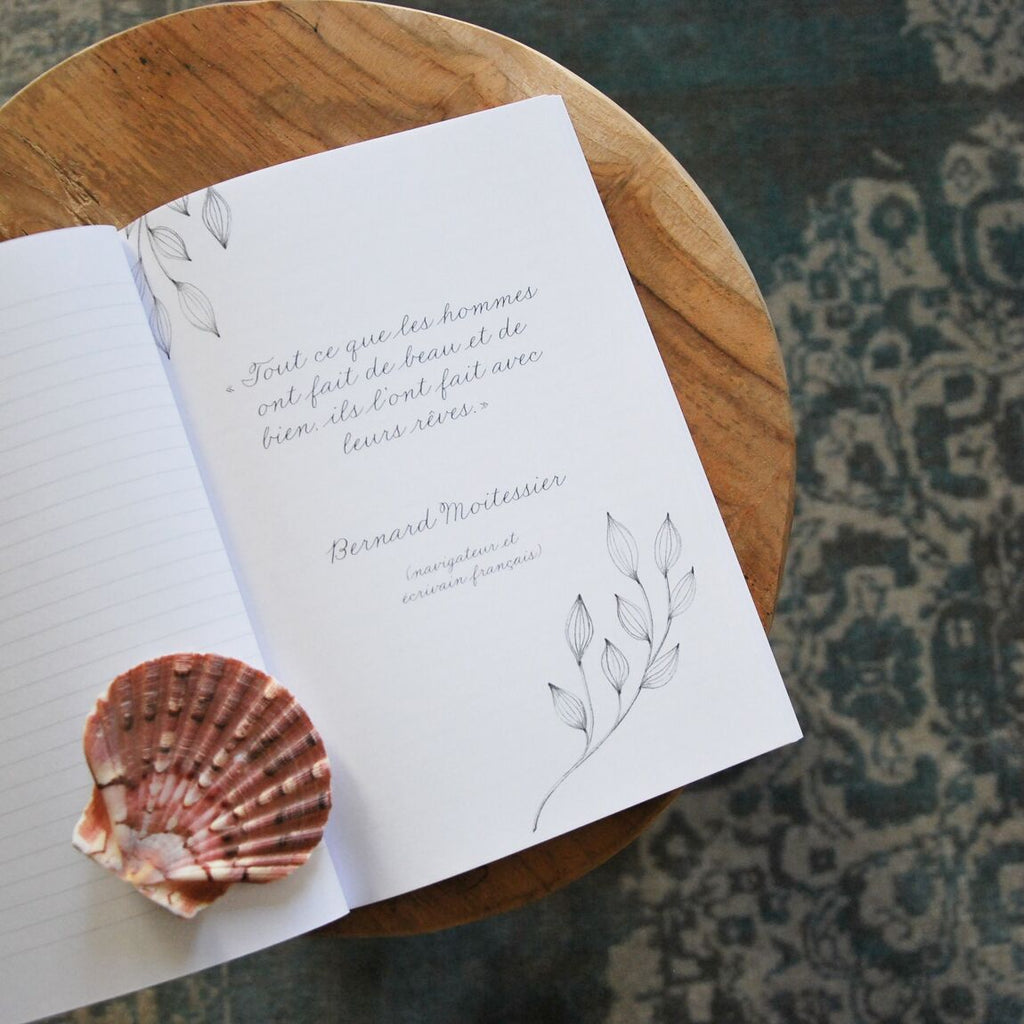 « Tout ce que les hommes
ont fait de beau et de
bien, ils l'ont fait avec
leurs rêves.»
Bernard Moitessier
(navigateur et
écrivain français)